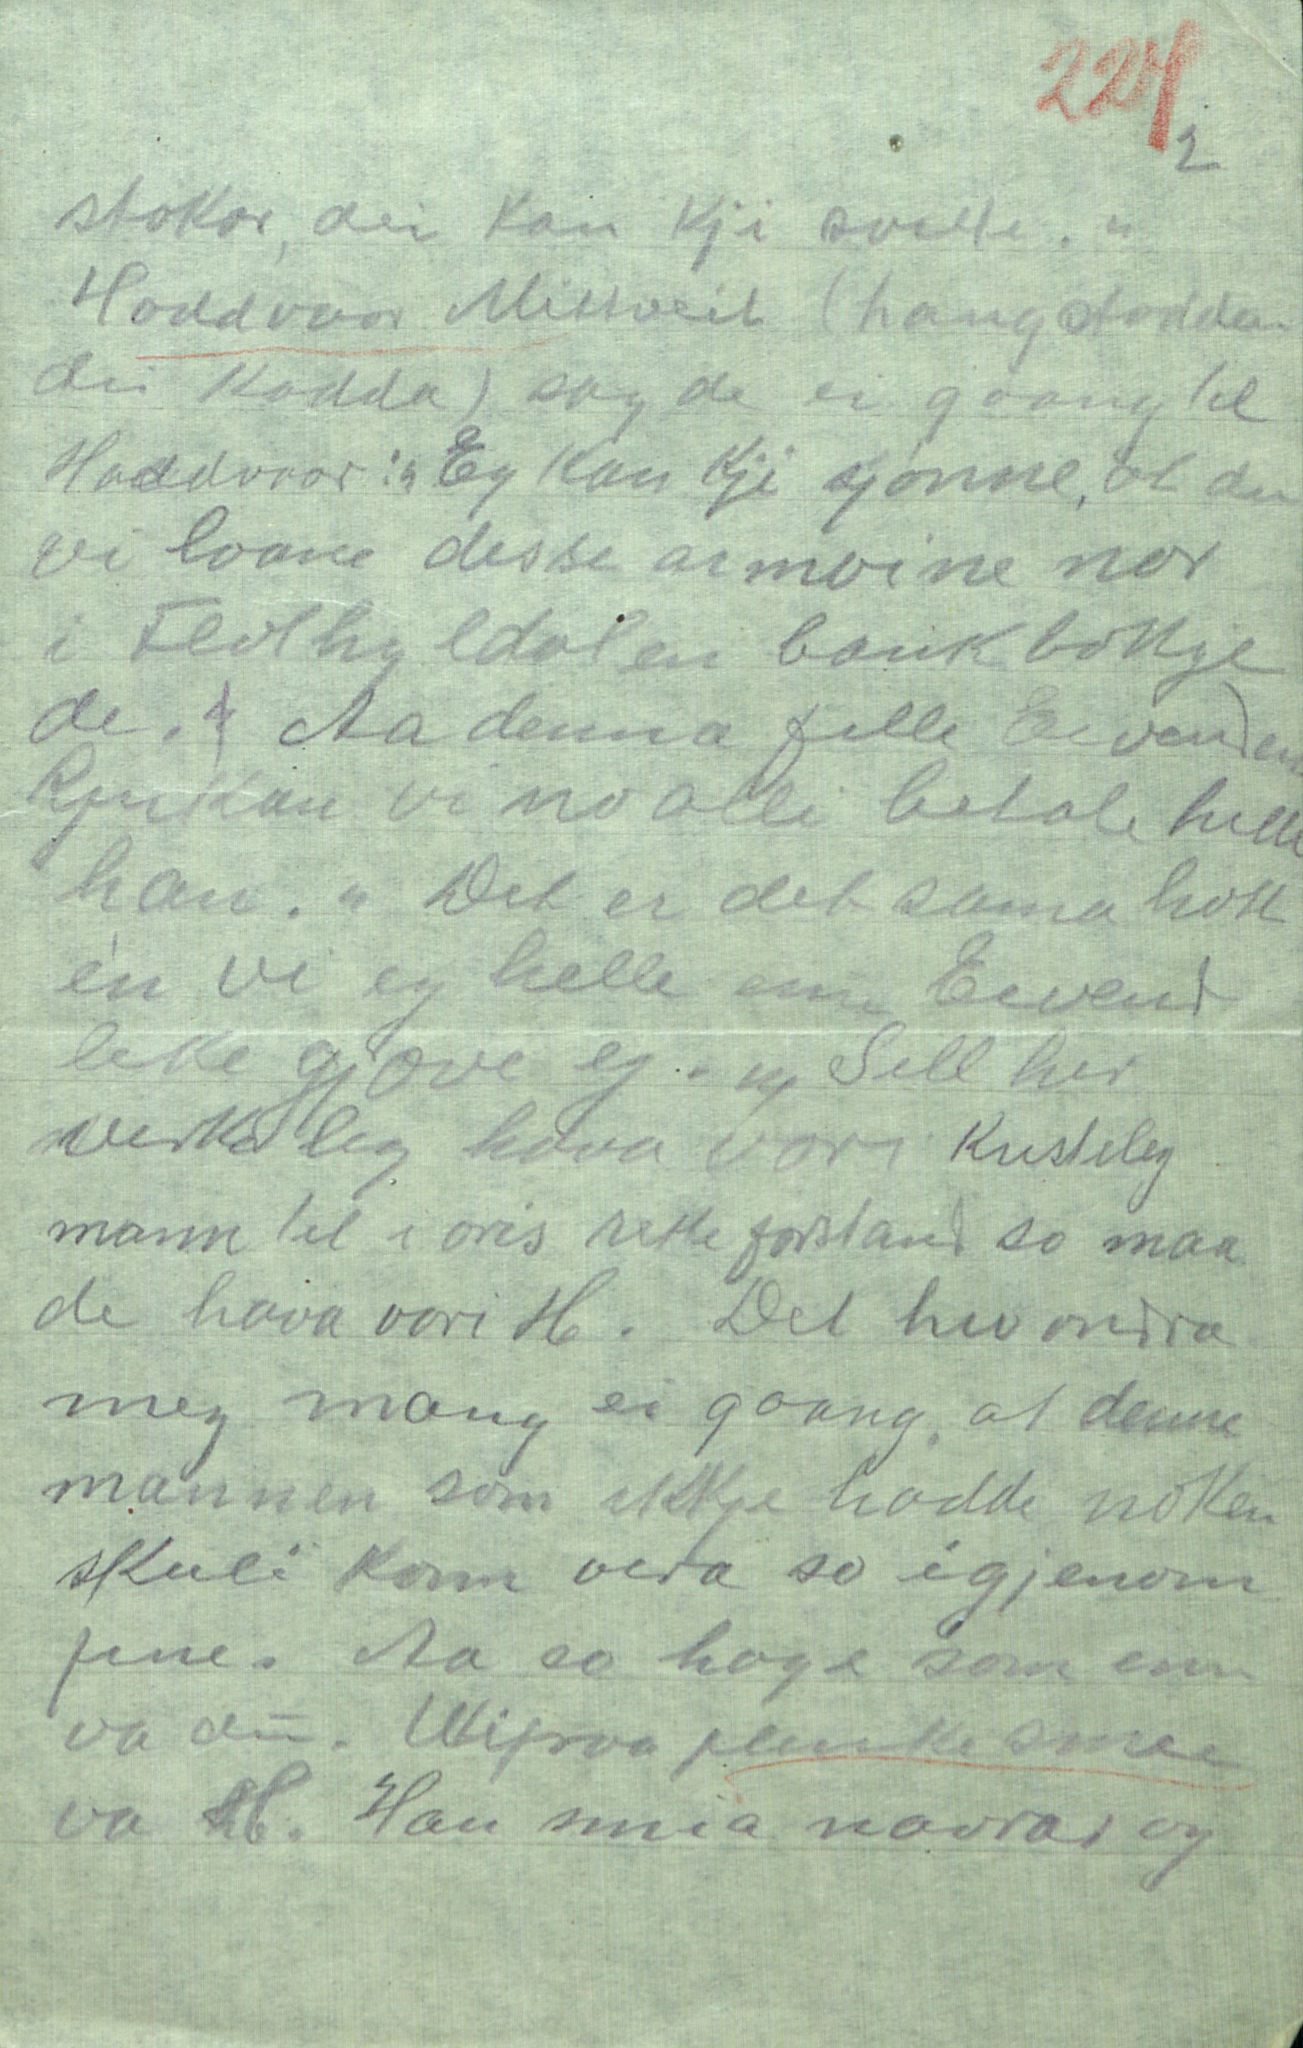 224
2
stakar, dei kan kji svelte."
Haddvaar Mitveit (hang stodda
di kodda) sagde ei gaang til
Haddvaar: "Eg kan kji sjönne, at du
vi laane desse armoine nor
i Flothyldalen bankbökje
de." "Aa denna fille Eivend en
Rjukan vi no alli betale helle
han." Det er det sama hott
én vi eg helle enn Eivend
leke gjæve eg." Sell her
verkeleg hava vori kristeleg
mann til i oris rette forstand so maa
de hava vori H. Det hev ondra
meg mang ei gaang, at denne
mannen som ikkje hadde noken
skuli konn vera so igjenom
fine. Aa so hage som enn
va dū. Uifraa plenkesmee
va H. Han smia navrar og